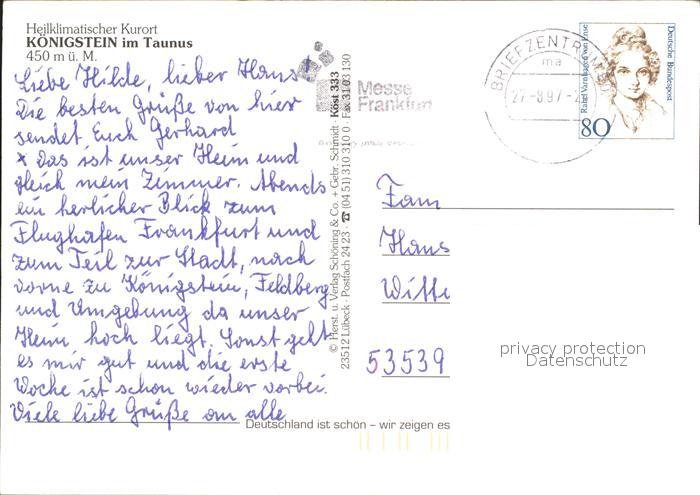 Heilklimatischer Kurort
KÖNIGSTEIN im Taunus
450 m ü. M.
Liebe Hilde, lieber Hans!
Die besten Grüße von hier
sendet Euch Gerhard
* Das ist unser Heim und
gleich mein Zimmer. Abends
ein herlicher Blick zum
Flughafen Frankfurt und
zum Teil zur Stadt, nach
vorne zu Königstein, Feldberg
und Umgebung da unser
Heim hoch liegt. Sonst geht
es mir gut und die erste
Woche ist schon wieder vorbei.
Viele liebe Grüße an alle
© Herst. u. Verlag Schöning & Co. + Gebr. Schmidt · Köst 333
23512 Lübeck · Postfach 24 23 · ☎ (04 51) 310 310 0 · Fax 31 03 130
Messe
Frankfurt
BRIEFZENTRUM
ma
27.-8.97-
Rahel Varnhagen von Ense
Deutsche Bundespost
80
Fam
Hans
Witte
53539
privacy protection
Datenschutz
Deutschland ist schön – wir zeigen es